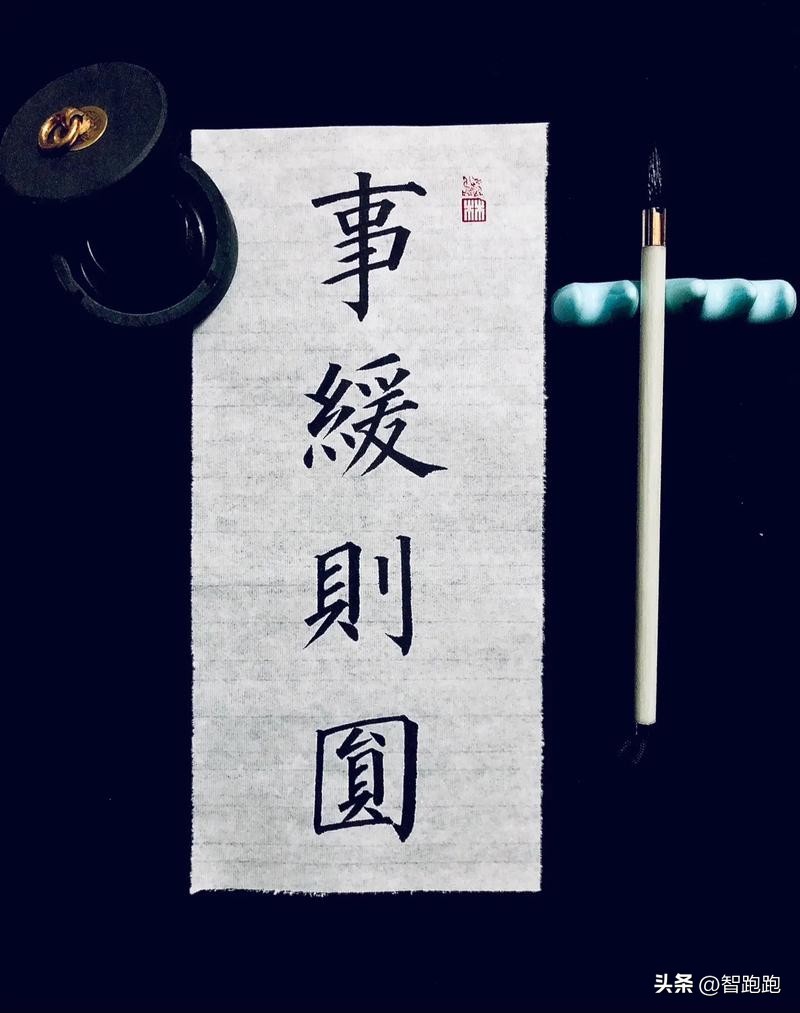 事緩則圓
头条 @智跑跑